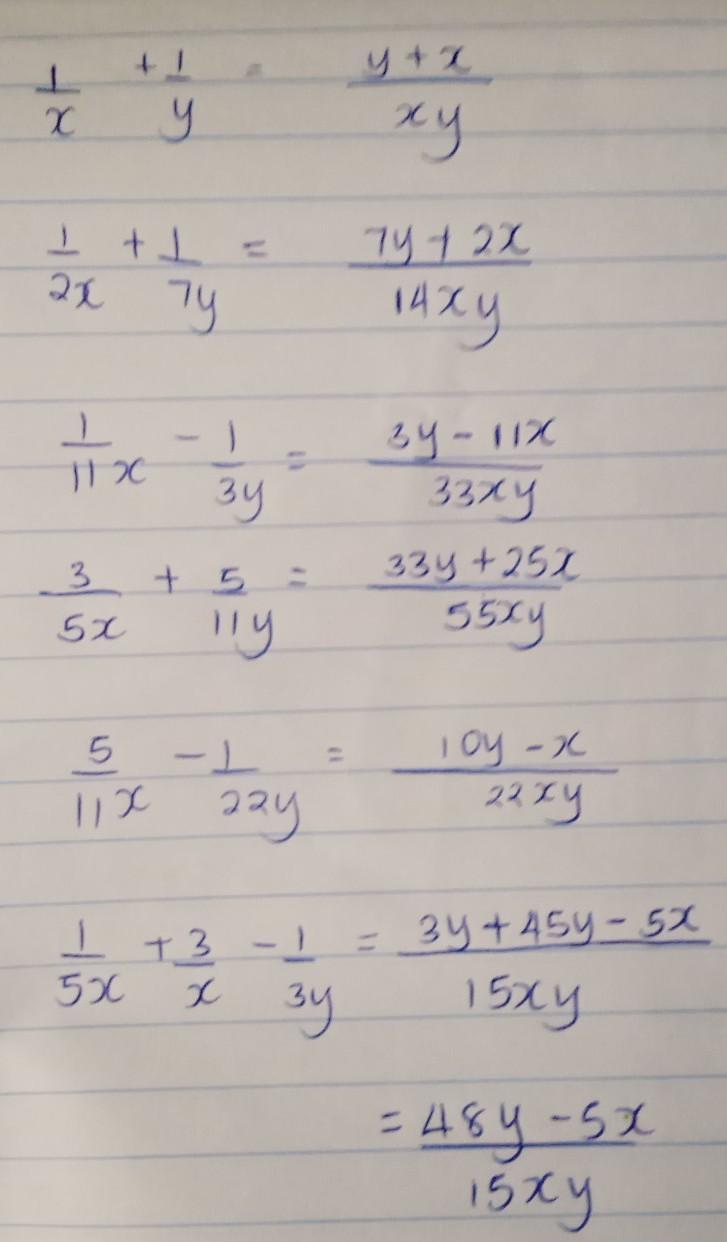 1/x + 1/y = y+x/xy
1/2x + 1/7y = 7y+2x/14xy
1/11x - 1/3y = 3y-11x/33xy
3/5x + 5/11y = 33y+25x/55xy
5/11x - 1/22y = 10y-x/22xy
1/5x + 3/x - 1/3y = 3y+45y-5x/15xy
= 48y-5x/15xy